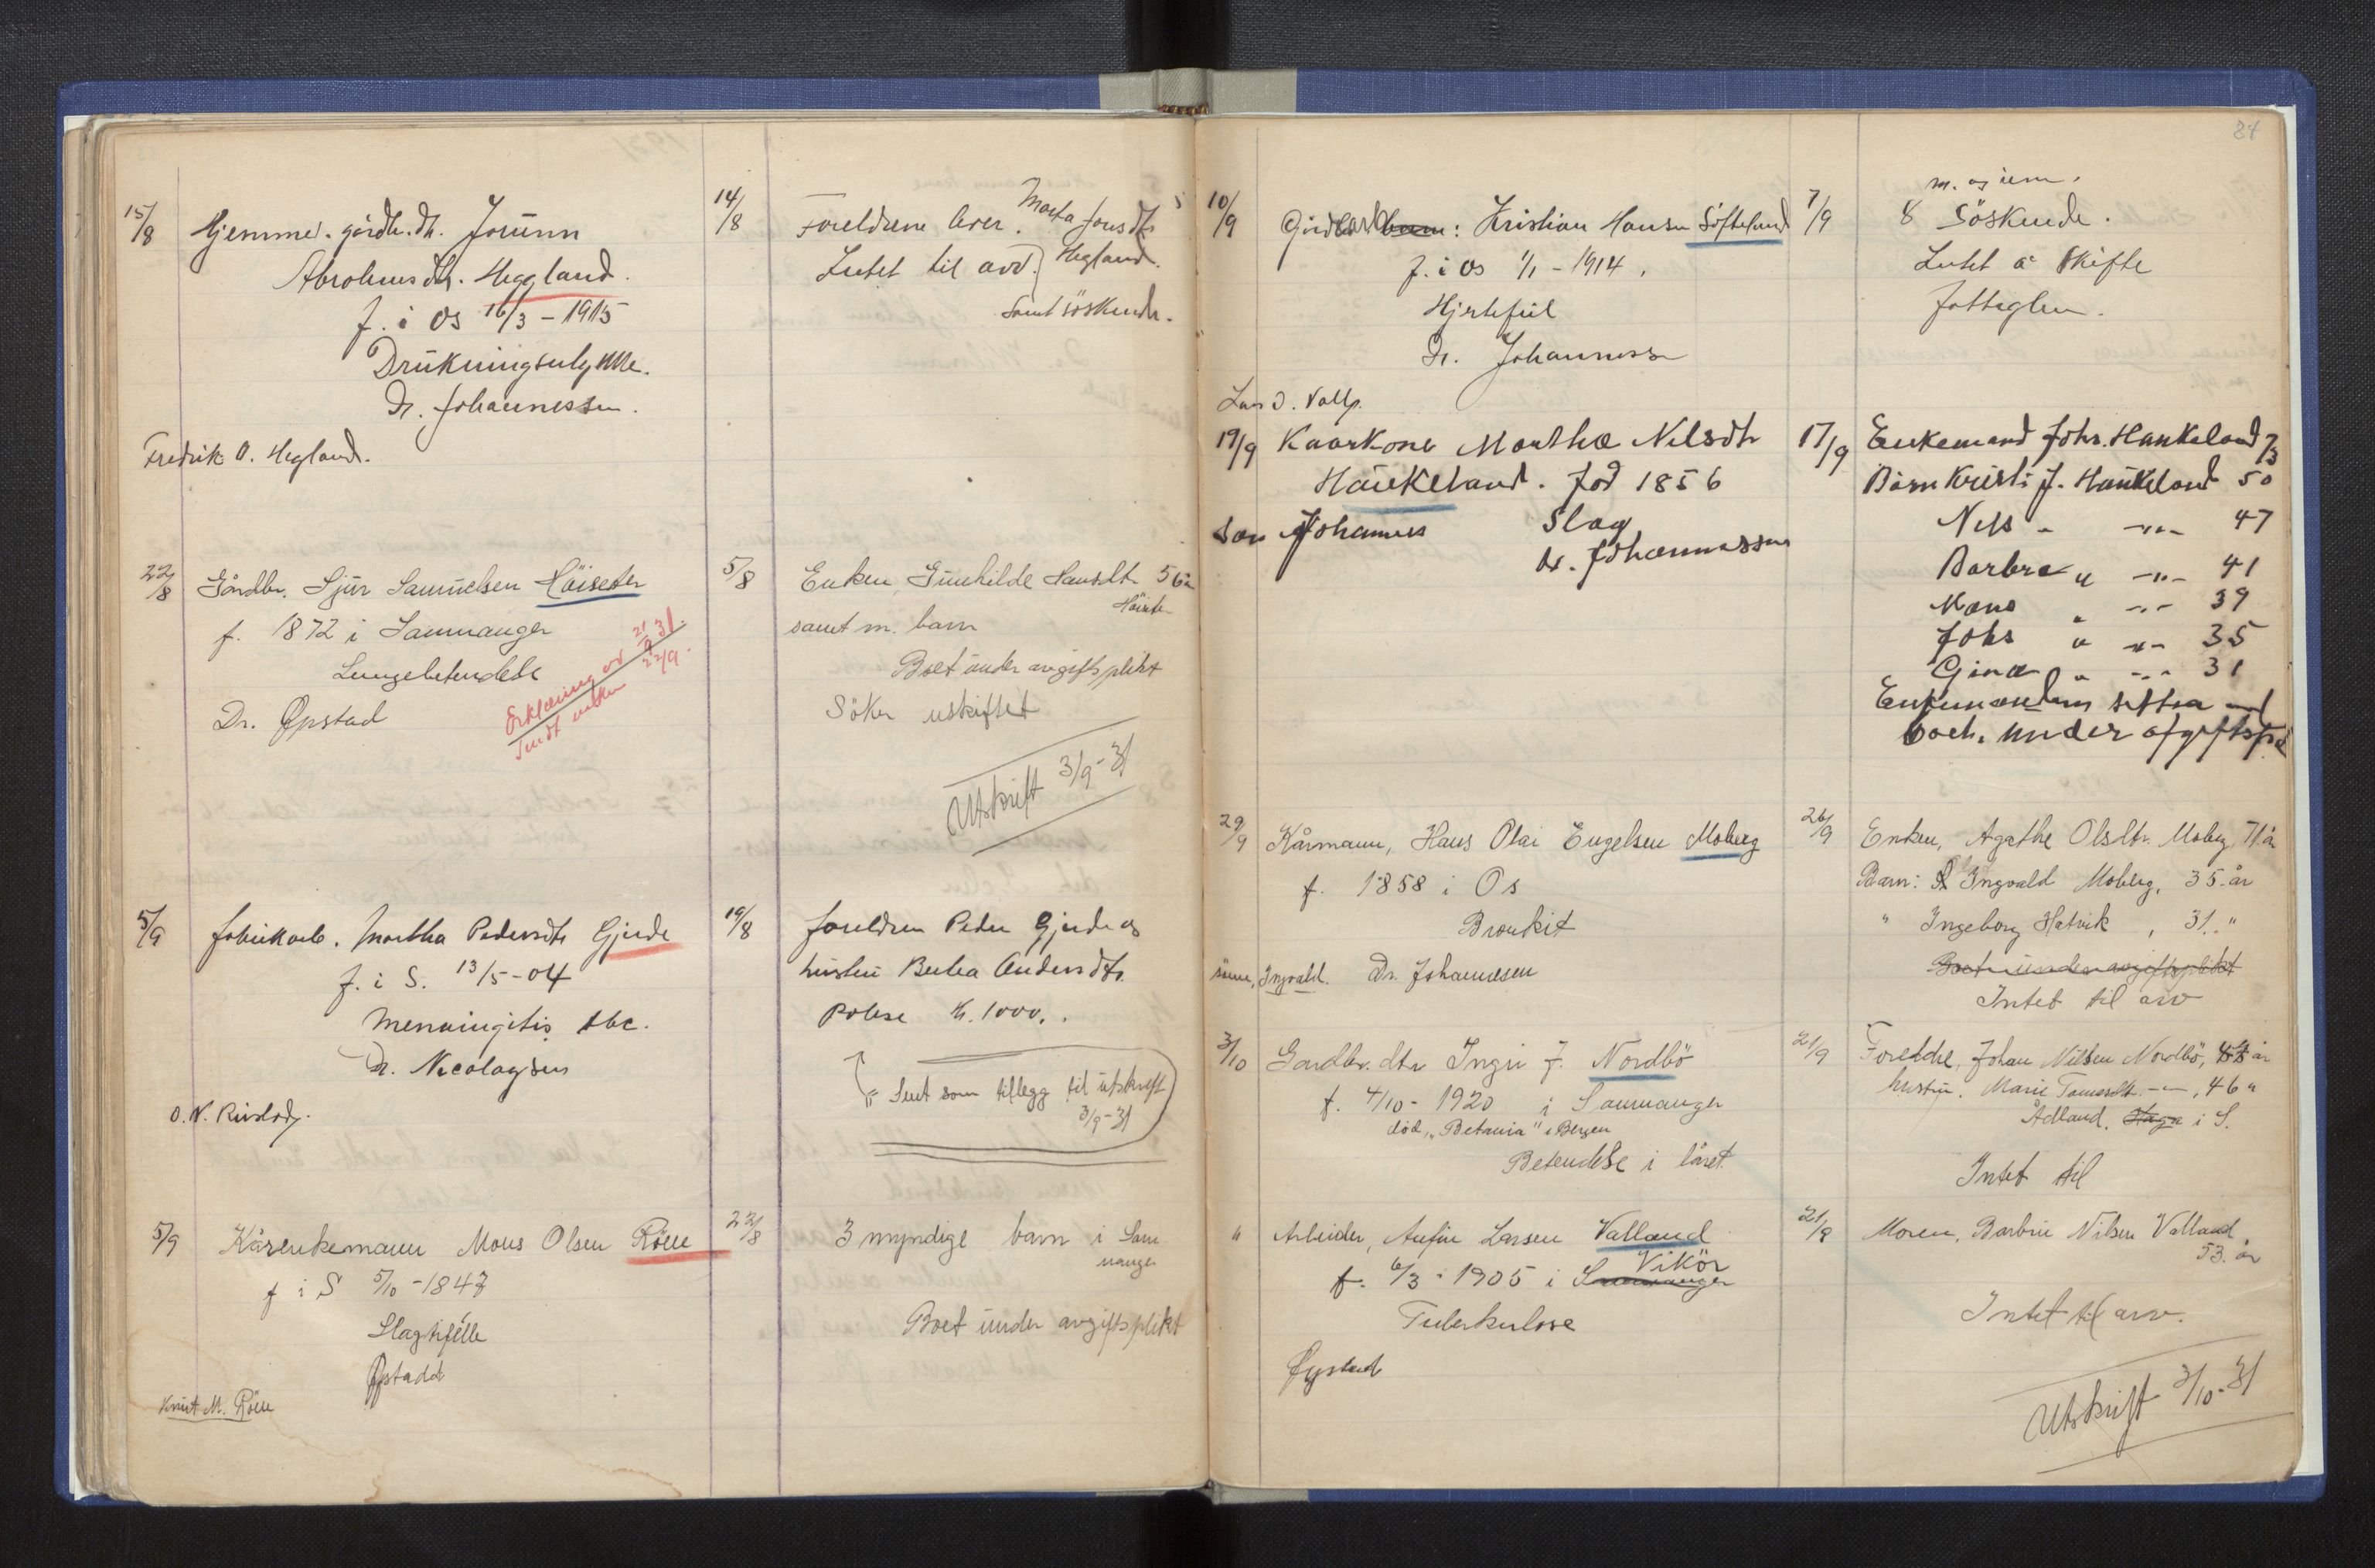 15/8 Hjemmev. gårdbr. dtr. Jorunn
Abrahms dtr. Hegland.
f. i Os 16/3 - 1915
Drukningsulykke.
Dr. Johannessen.
Fredrik O. Hegland.
14/8 Foreldrene lever. Marta Jonsdtr
Intet til arv. Hegland.
Samt söskende.
22/8 Gårdbr. Sjur Samuelsen Höiseter
f. 1872 i Samnanger
Lungebetendelse
Dr. Øpstad
Erklæring 21/9 31.
Sendt enken 22/9.
5/8 Enken, Gunhilde Hansdtr 56 år
Höiseter
samt m. barn
Boet under avgiftsplikt
Söker uskiftet
Utskrift 3/9-31
5/9 fabrikarb. Martha Pedersdtr Gjerde
f. i S. 13/5-04
Menningitis tbc.
Dr. Nicolaysen
19/8 foreldren Peder Gjerde og
hustru Berta Andersdtr.
Polise kr. 1000.
Sent som tillegg til utskrift
3/9-31
5/9 Kårenkemann Mons Olsen Röen
f i S 5/10 - 1847
Slagtifelle
Øpstadd
Knut M. Röen
22/8 3 myndige barn i Sam
nanger
Boet under avgiftsplikt
84
10/9 Gårdbarn: Kristian Hansen Söfteland
f. i Os 1/1 - 1914.
Hjertefeil
Dr. Johannessen
7/9 8 Söskende.
Intet å skifte
Lars O. Valle.
19/9 Kaarkone Martha Nilsdtr
Haukeland. Fød 1856
Søn Johannes Slag
Dr. Johannessen
17/9 Enkemand Johs. Haukeland 73
Børn Kristi J. Haukeland 50
Nils " -"- 47
Barbra " -"- 41
Mons " -"- 39
Johs " -"- 35
Gina " -"- 31
Enkemanden sitter med
boet. under afgiftspl
29/9 Kårmann, Hans Olai Engelsen Moberg
f. 1858 i Os
Bronkit
Ingvald. Dr. Johannesen
26/9 Enken, Agathe Olsdtr. Moberg 71 år
Barn: Ingvald Moberg, 35 år
" Ingeborg Hatvik, 31 "
Boet under avgiftsplikt
Intet til arv
3/10 Gardbr. dtr Inger J. Nordbö
f. 4/10 - 1920 i Samnanger
död, "Betania" i Bergen
Betendelse i låret
21/9 Foreldre, Johan Nilsen Nordbö, år
hustru. Marie -"-, 46 "
Ådland. Haga i S.
Intet til
" Arbeider, Anfin Larsen Valland
f. 6/3 - 1905 i Samnanger Vikör
Tuberkulose
Øpstad
21/8 Moren, Barbru Nilsen Valland,
53 år
Intet til arv.
Utskrift 3/10-31